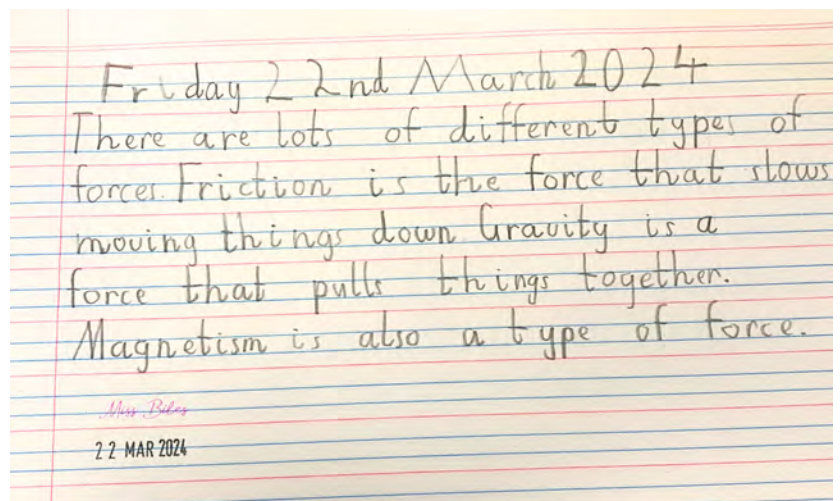 Friday 22nd March 2024
There are lots of different types of
forces. Friction is the force that slows
moving things down Gravity is a
force that pulls things together.
Magnetism is also a type of force.
Miss Biles
22 MAR 2024